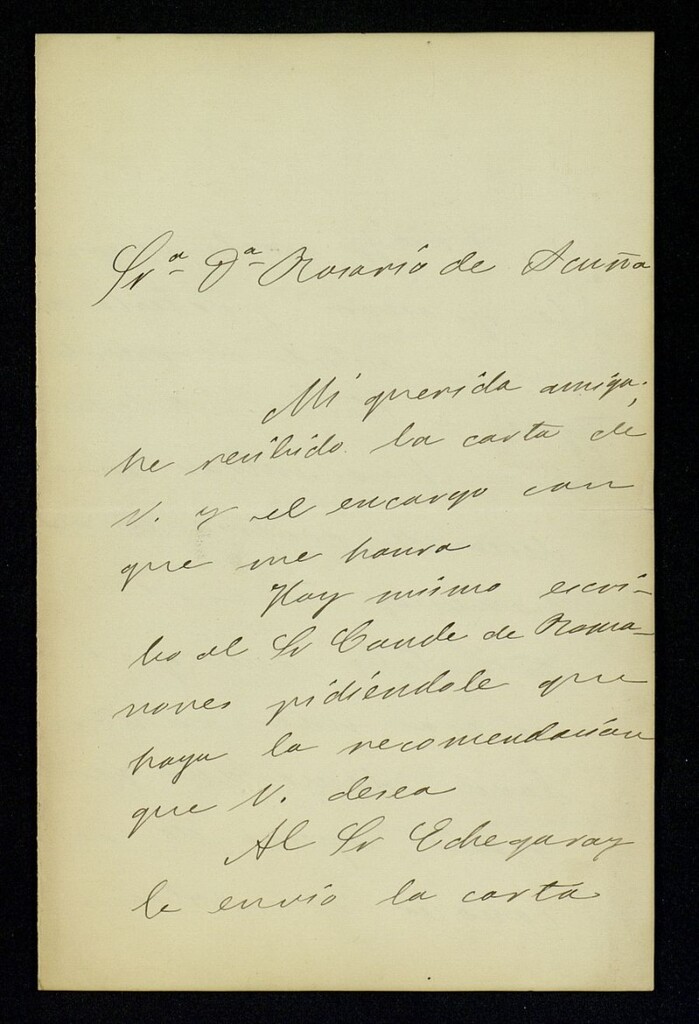 Srª Dª Rosario de Acuña
Mi querida amiga,
he recibido la carta de
V. y el encargo con
que me honra
Hoy mismo escri-
bo al Sr Conde de Roma-
nones pidiéndole que
haga la recomendación
que V. desea
Al Sr Echegaray
le envío la carta